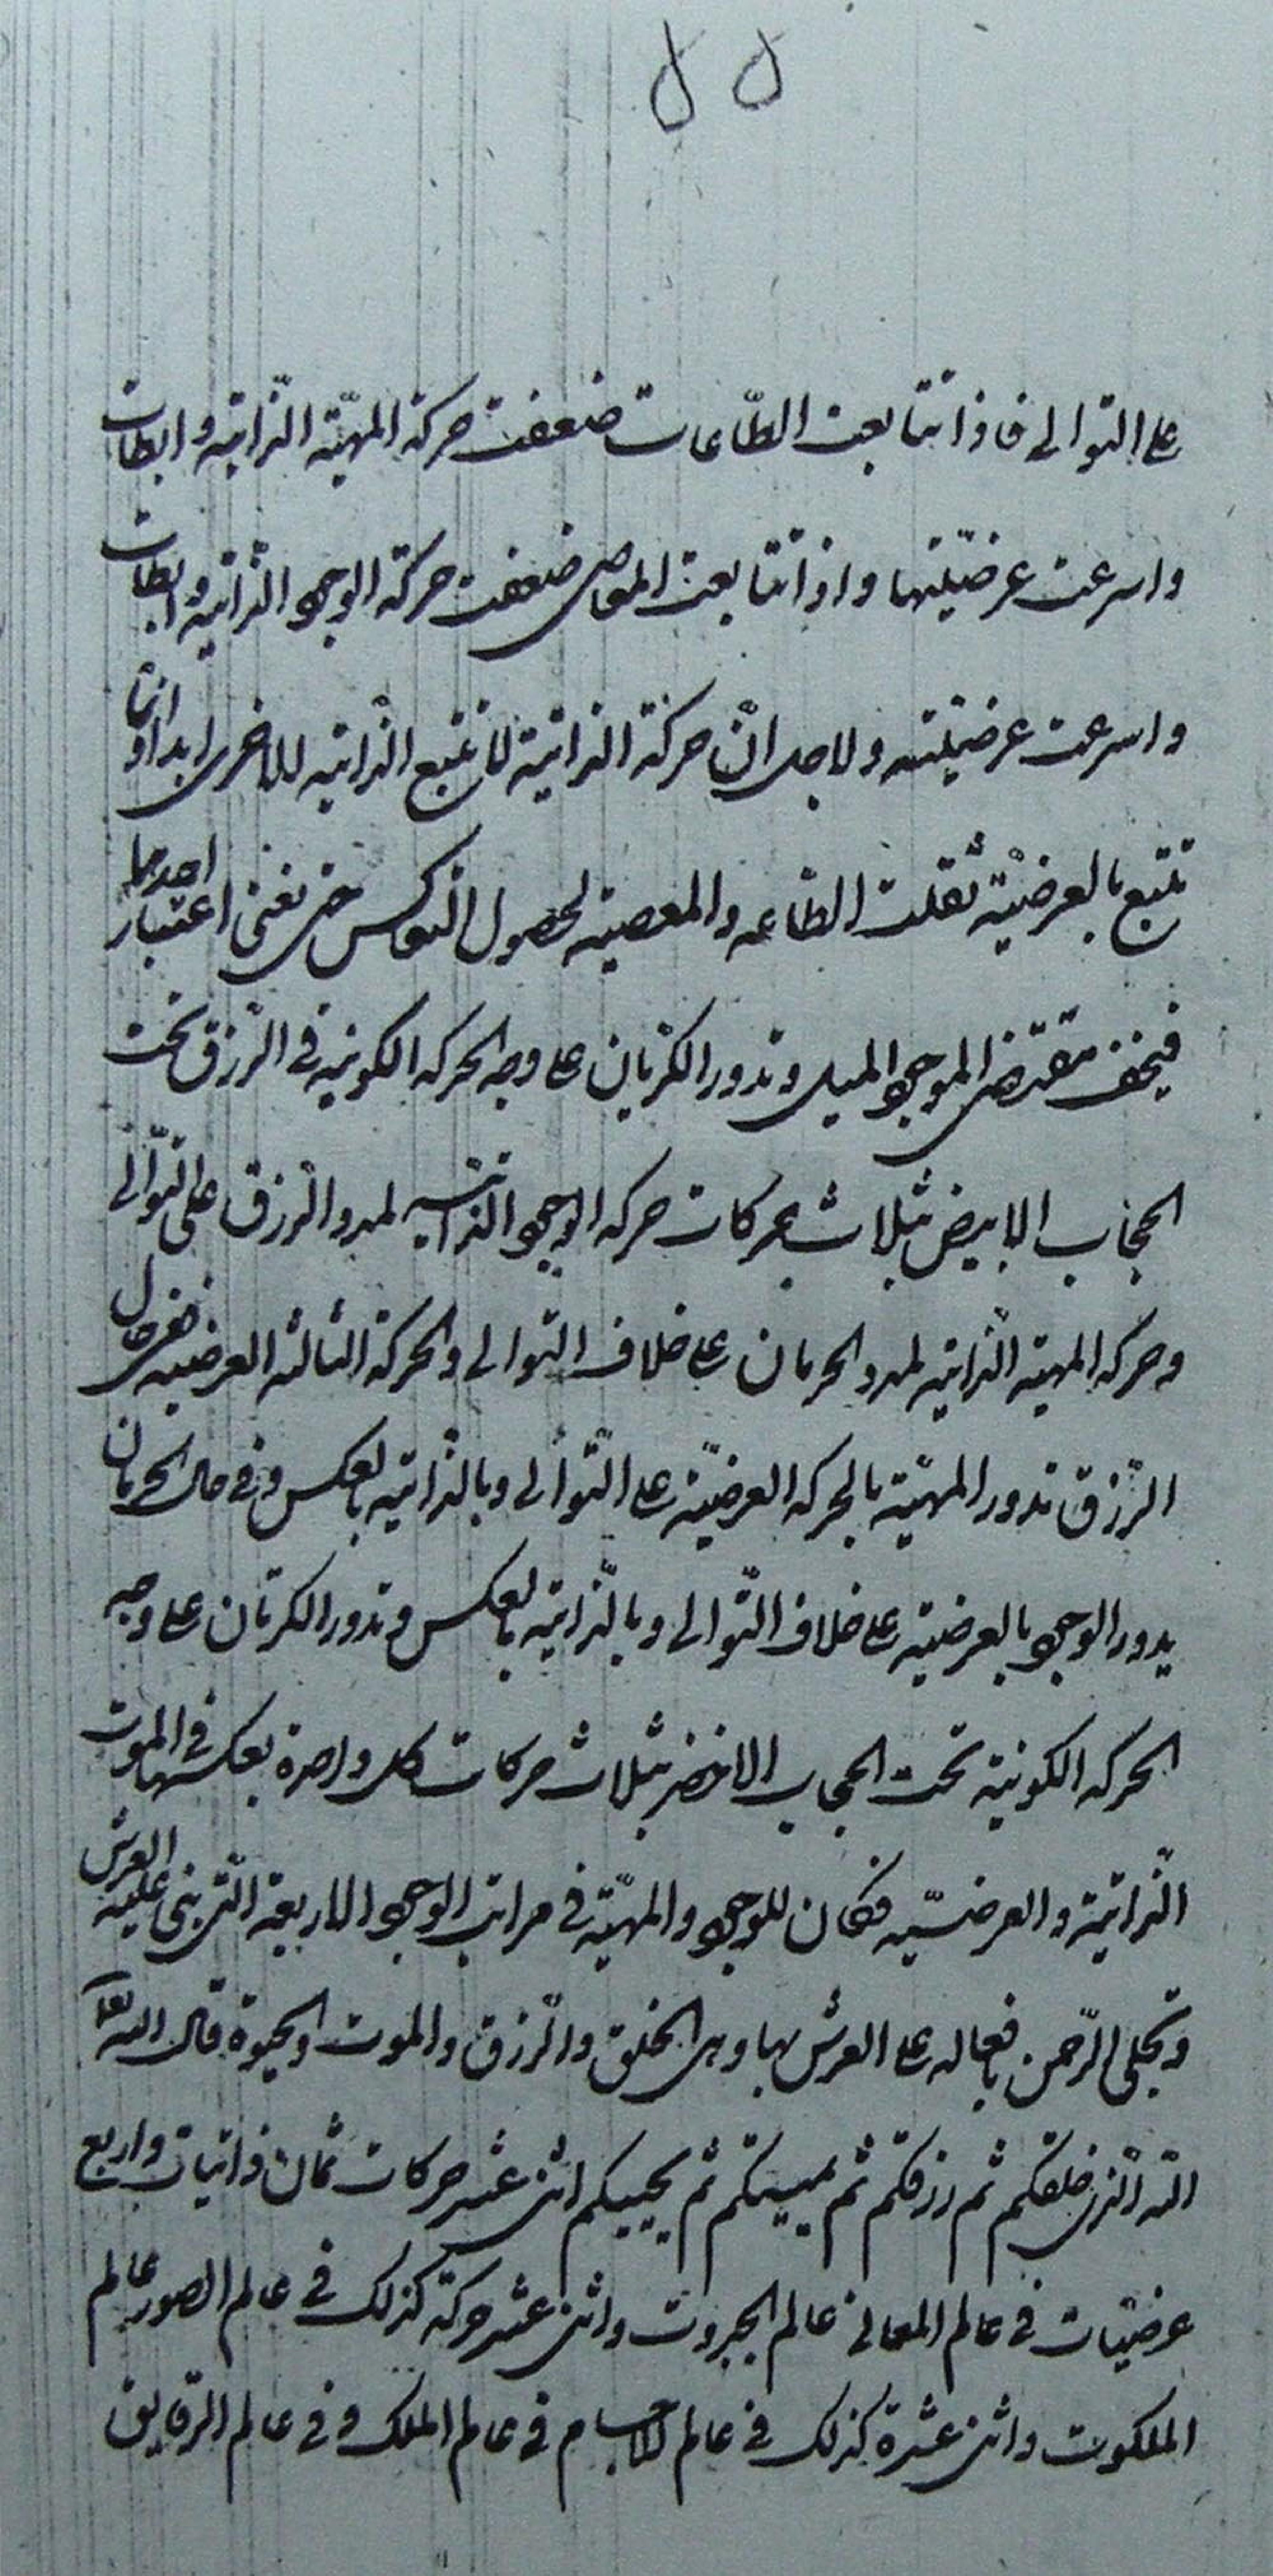 ٥٥
على التوالى فاذا تتابعت الطّاعات ضعفت حركة المهيّة الذّاتيه وابطات
واسرعت عرضيّتها واذا تتابعت المعاصى ضعفت حركة الوجود الذّاتيه وابطات
واسرعت عرضيّته ولاجل انّ حركة الذاتيّة لا تتبع الذّاتيه للاخرى ابدا وانّما
تتبع بالعرضيّة ثقلت الطّاعه والمعصيه لحصول التعاكس حتى تفنى اعتبار احدهما
فيخف مقتضى الموجود الميل وتدور الكرتان على وجه الحركه الكونيه فى الرّزق تحت
الحجاب الابيض بثلاث حركات حركه الوجود الذاتيه لمدد الرّزق على التّوالى
وحركه المهيه الذّاتيه لمدد الحرمان على خلاف التوالى والحركة الثالثه العرضيه ففى حال
الرّزق تدور المهيّة بالحركه العرضيّه على التّوالى وبالذّاتيه بالعكس وفى حال الحرمان
يدور الوجود بالعرضيّه على خلاف التّوالى وبالذّاتيه بالعكس وتدور الكرتان على وجه
الحركه الكونيه تحت الحجاب الاخضر بثلاث حركات كل واحدة بعكسها فى الموت
الذّاتيّة والعرضيّه فكان للوجود والمهيّة فى مراتب الوجود الاربعة الّتى بنى عليه العرش
وتجلى الرّحمن بافعاله على العرش بها وهى الخلق والرّزق والموت والحيوة قال الله تعا
الله الّذى خلقكم ثم رزقكم ثم يميتكم ثم يحييكم اثنى عشر حركات ثمان ذاتيات واربع
عرضيّات فى عالم المعانى عالم الجبروت واثنى عشر حركة كذلك فى عالم الصور عالم
الملكوت واثنى عشرة كذلك فى عالم الاجسام فى عالم الملك وفى عالم الرّقايق